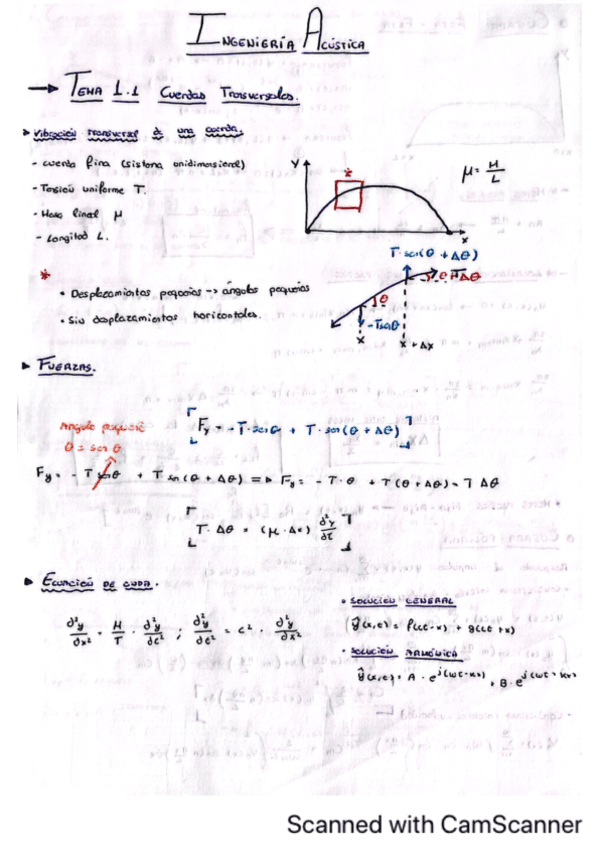 INGENIERÍA ACÚSTICA
→ TEMA 1.1 Cuerdas Transversales.
> Vibración transversal de una cuerda.
- cuerda fina (sistema unidimensional)
- Tensión uniforme T.
- Masa lineal μ
- Longitud L.
Y
*
x
μ = M/L
*
• Desplazamientos pequeños -> ángulos pequeños
• Sin desplazamientos horizontales.
T·sen(θ + Δθ)
θ + Δθ
θ
-Tsenθ
x
x + Δx
► FUERZAS.
Ángulo pequeño
θ = sen θ
Fy = -T·senθ + T·sen(θ + Δθ)
Fy = - T senθ + T sen(θ + Δθ) => Fy = - T·θ + T(θ + Δθ) = T Δθ
T·Δθ = (μ·Δx) ∂²y/∂t²
► ECUACIÓN DE ONDA.
∂²y/∂x² = μ/T · ∂²y/∂t² ; ∂²y/∂t² = c² · ∂²y/∂x²
• SOLUCIÓN GENERAL
y(x,t) = f(ct-x) + g(ct+x)
• SOLUCIÓN ARMÓNICA
ŷ(x,t) = A · e^j(ωt-kx) + B · e^j(ωt+kx)
Scanned with CamScanner